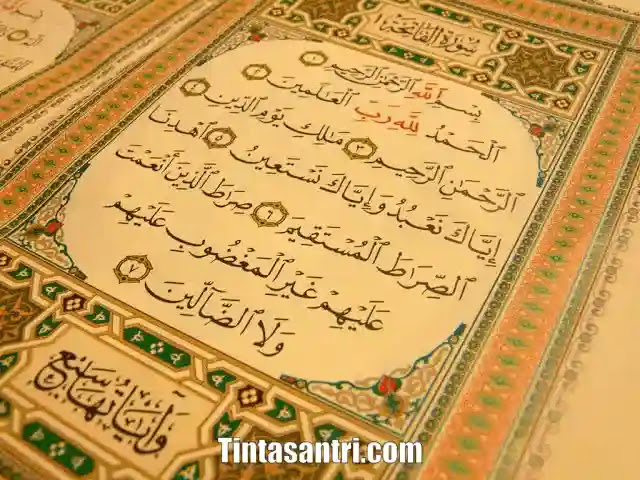 سُورَةُ الفَاتِحَةِ
بِسْمِ ٱللَّهِ ٱلرَّحْمَٰنِ ٱلرَّحِيمِ ١
ٱلْحَمْدُ لِلَّهِ رَبِّ ٱلْعَٰلَمِينَ ٢
ٱلرَّحْمَٰنِ ٱلرَّحِيمِ ٣ مَٰلِكِ يَوْمِ ٱلدِّينِ ٤
إِيَّاكَ نَعْبُدُ وَإِيَّاكَ نَسْتَعِينُ ٥ ٱهْدِنَا
ٱلصِّرَٰطَ ٱلْمُسْتَقِيمَ ٦ صِرَٰطَ ٱلَّذِينَ أَنْعَمْتَ
عَلَيْهِمْ غَيْرِ ٱلْمَغْضُوبِ عَلَيْهِمْ
وَلَا ٱلضَّآلِّينَ ٧
وَآيَاتُهَا سَبْعٌ
Tintasantri.com